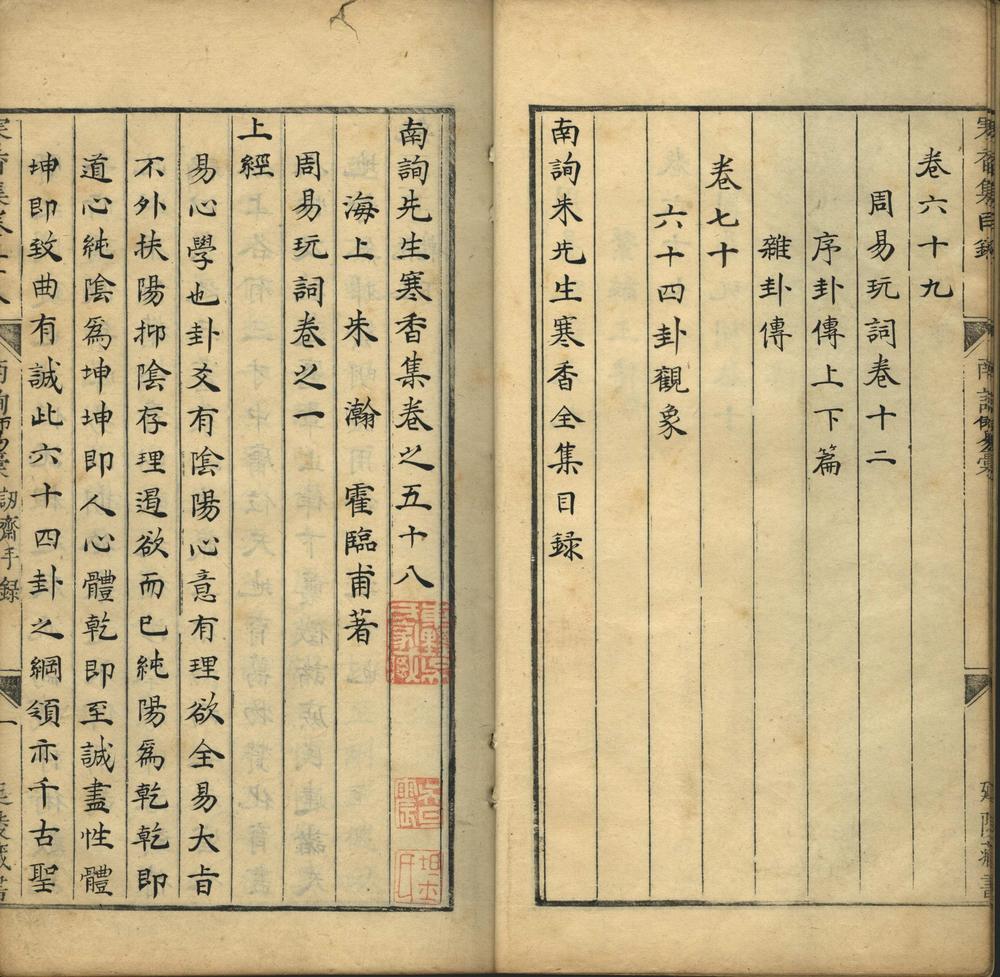 寒香集目錄
卷六十九
周易玩詞卷十二
序卦傳上下篇
雜卦傳
卷七十
六十四卦觀象
南詢朱先生寒香全集目錄
南詢先生寒香集卷之五十八
海上朱瀚霍臨甫著
周易玩詞卷之一
上經
易心學也卦爻有陰陽心意有理欲全易大旨
不外扶陽抑陰存理遏欲而已純陽爲乾乾即
道心純陰爲坤坤即人心體乾即至誠盡性體
坤即致曲有誠此六十四卦之綱領亦千古聖
訒齋手録
一